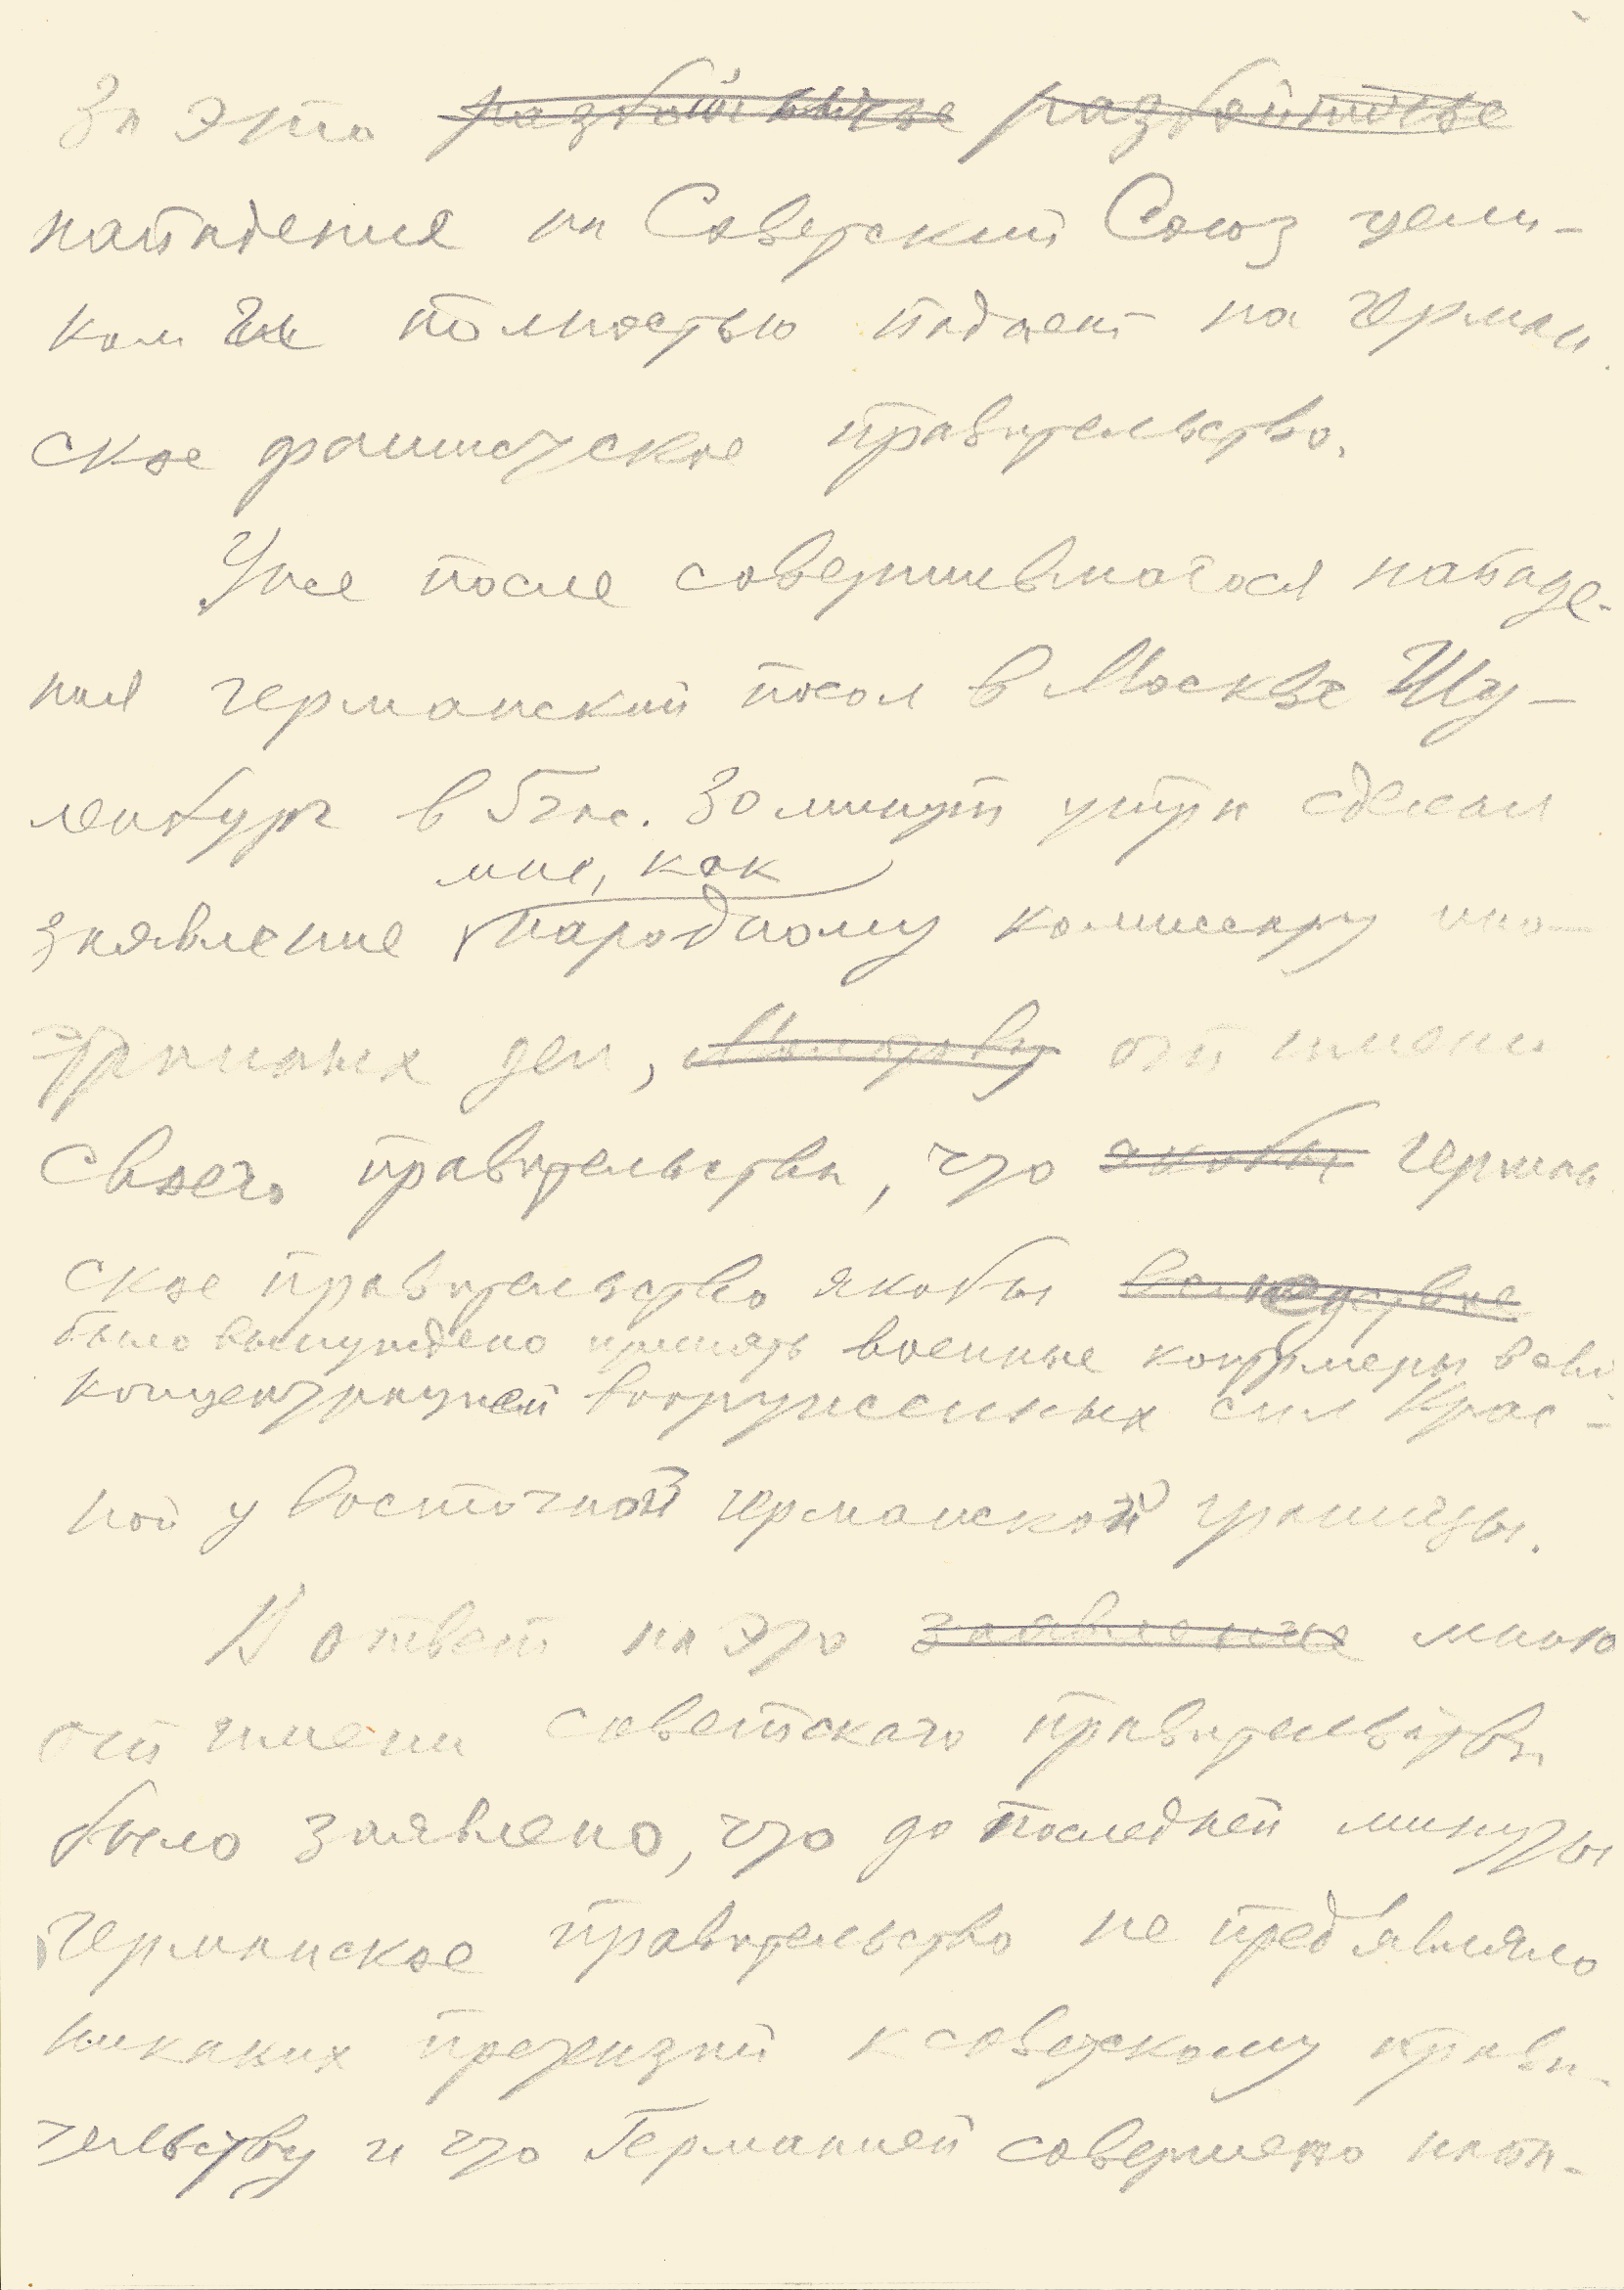 За это разбойничье разбойничье
нападение на Советский Союз цели-
ком и полностью падает на герман
ское фашистское правительство.
Уже после совершившегося нападе-
ния германский посол в Москве Шу-
ленбург в 5 час. 30 минут утра сделал
мне, как
заявление народному комиссару ино-
странных дел, Молотову от имени
своего правительства, что якобы герман
ское правительство якобы вследствие
было вынуждено принять военные контрмеры в свя
концентрацией вооруженных сил Крас-
ной у восточной германской границы.
В ответ на это заявление мною
от имени советского правительства
было заявлено, что до последней минуты
германское правительство не пред'являло
никаких претензий к советскому прави-
тельству и что Германией совершено напа-